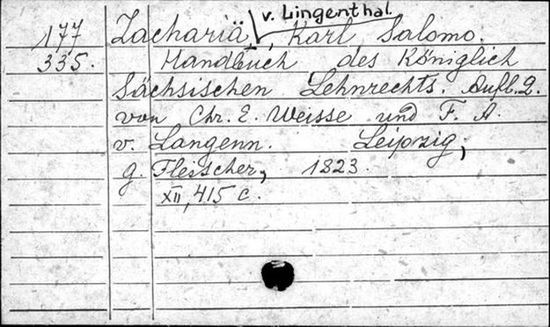 v. Lingenthal.
177 Zachariä, Karl Salomo.
335. Handbuch des Königlich
Sächsischen Lehnrechts. Aufl. 2.
von Chr. E. Weisse und F. A.
v. Langenn. Leipzig,
g. Fleischer, 1823.
XII, 415 c.